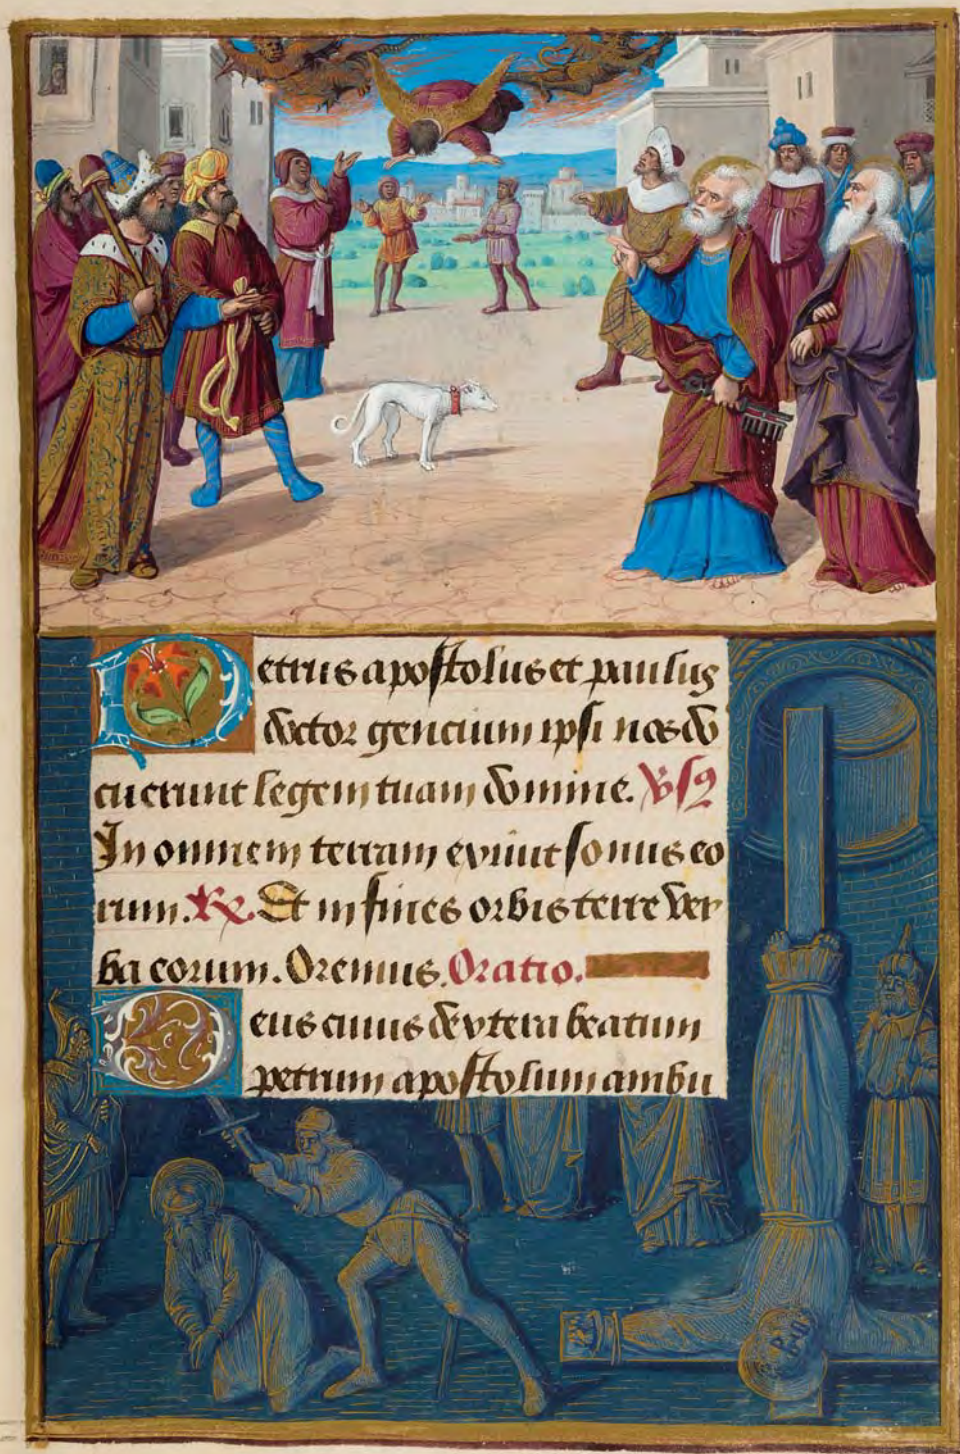 Petrus apostolus et paulus
doctor gencium ipsi nos do
cuerunt legem tuam domine. Vsꝯ
In omnem terram exiuit sonus eo
rum. Rx. Et in fines orbis terre ver
ba eorum. Oremus. Oratio.
Deus cuius dextera beatum
petrum apostolum ambu